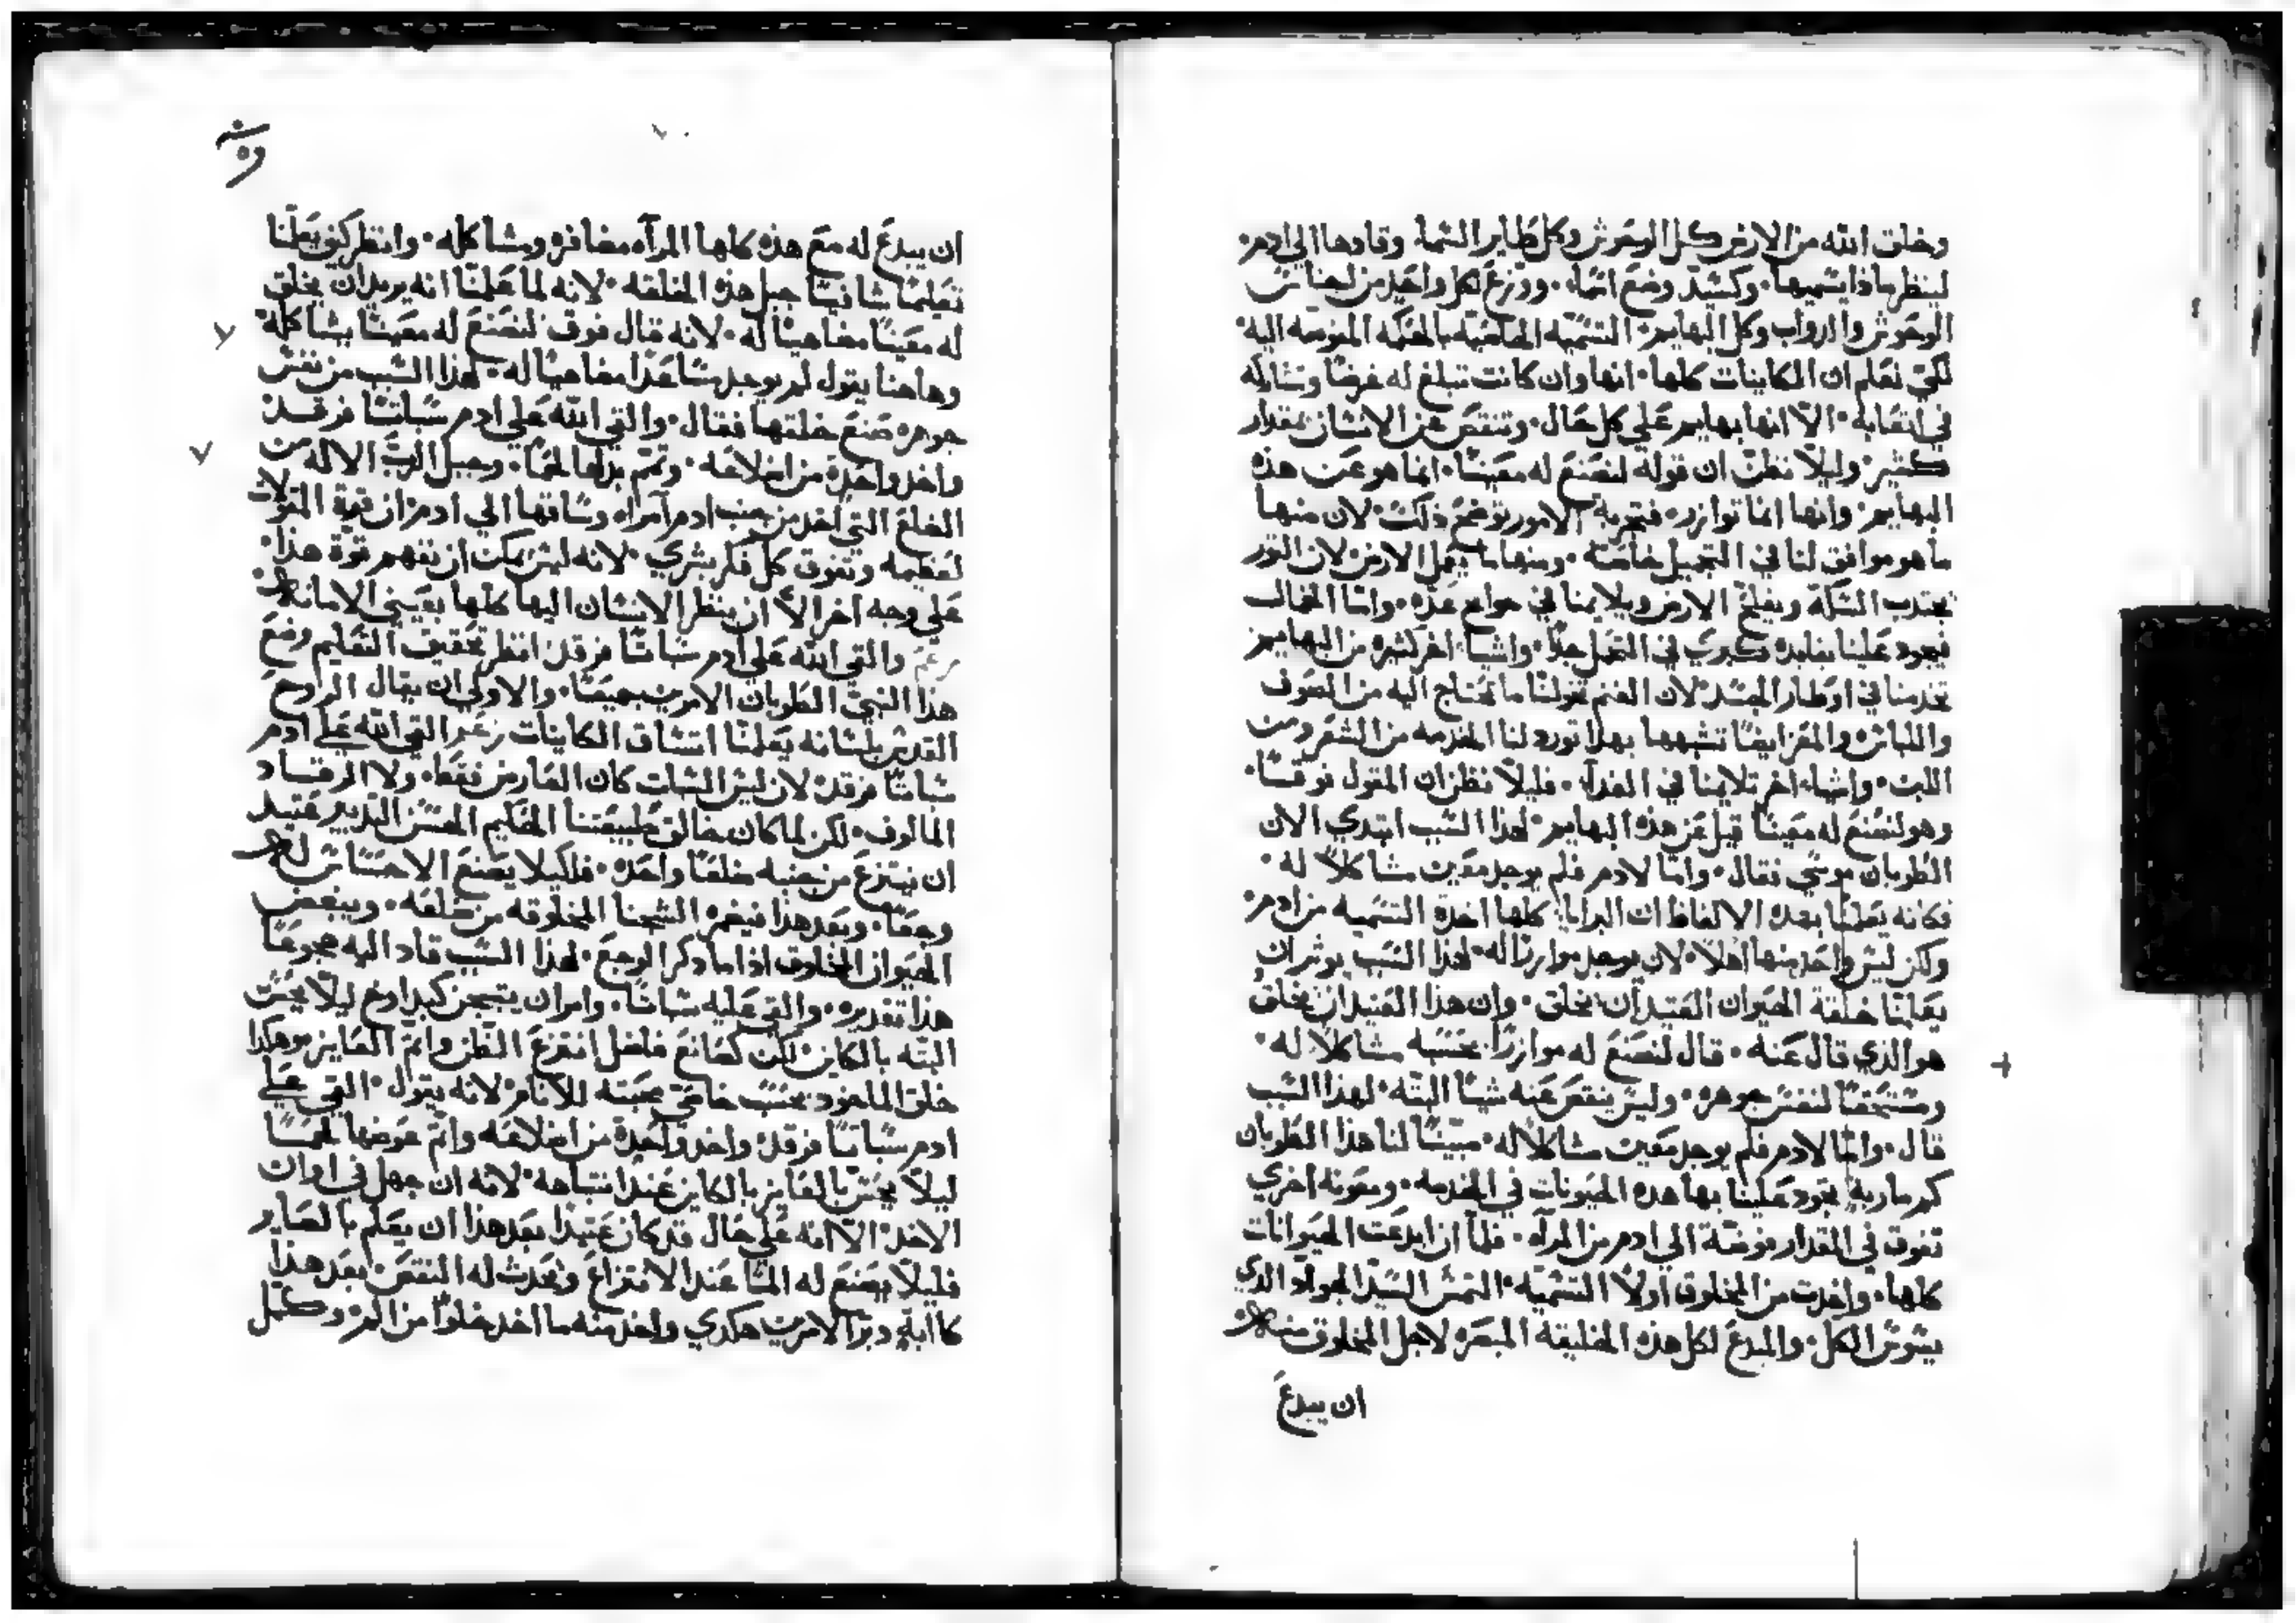 وخلق الله من الارض كل الوحوش وكل طاير السما. وقادها الي ادم.
لينظر ماذا يسميها. وكسيد وضع اسما. ووزع لكل واحد من اجناس
الوحوش والدواب وكل البهايم. التسميه الخاصيه بالحكمه الموضه اليه.
لكي نعلم ان الكاينات كلها. انها وان كانت تبلغ له غرضا وتشاركه
في اتعابه. الا انها بهايم علي كل حال. وتنقص عن الانسان بمقدار
كثير. وليلا نظن ان قوله لنصنع له معينا. انما هو عن هذه
البهايم. وانها انما توازر. فتجربة الامور توضح ذلك. لان منها
ما هو موافق لنا في التحميل خاصة. ومنها ما يفلح الارض لان التور
يجتدب السكة ويفلح الارض ويلايمنا في حوايج عده. واما الجمال
فيجود علينا بفايده كبري في التحمل جدا. واشيا اخر كثيره من البهايم
تخدمنا في اوطار الجسد لان الغنم تخولنا ما نحتاج اليه من الصوف
واللباس والمعز ايضا تشبهها بهدا تورد لنا الخدمه من الشعر ومن
اللبن. واشيا اخر تلايمنا في الغدا. فليلا نظن ان المقول فوقسا.
وهو لنصنع له معينا قيل عن هذه البهايم. لهذا السبب ابتدي الان
الطوبان موسي فقال. واما لادم فلم يوجد معين مشاكلا له.
فكانه يعلمنا بهده الالفاظ ان البرايا كلها اخدة التسميه من ادم.
ولكن ليس واحد منها اهلا. لان يوجد موازرا له. لهذا السبب يوثر ان
يعلمنا خلقة الحيوان العتيد ان يخلق. وان هذا العتيد ان يخلق
هو الذي قال عنه. قال لنصنع له موازرا بحسبه مشاكلا له.
ومستحقا لنفس جوهره. وليس ينقص عنه شيا البته. لهذا السبب
قال. واما لادم فلم يوجد معين مشاكلا له. مبينا لنا هذا الطوبان
يجود علينا بها هده الحيونات في الخدمه. ومعونه اخري
تفوق في المقدار مفوضة الي ادم من المراه. فلما ان ابدعت الحيوانات
كلها. واخدت من المخلوق اولا التسميه. التمس السيد الجواد الذي
يسوس الكل. والمبدع لكل هذه الخليقه المبصره لاجل المخلوق
ان يبدع
ان يبدع له مع هذه كلها المراه مضافره ومشاكله. وانظر كيف يعلمنا
تعليما شافيا جبل هذه الخلقه. لانه لما علمنا انه يريد ان يخلق
له معينا مضاهيا له. لانه قال فوق لنصنع له معينا يشاكله.
وهاهنا يقول لم يوجد مساعدا مضاهيا له. لهذا السبب من نفس
جوهره صنع خلقتها فقال. والقي الله علي ادم سباتا فرقد.
واخد واحدة من اضلاعه. وتمم بدلها لحما. وجبل الرب الاله من
الضلع التي اخد من جنب ادم امراه وساقها الي ادم. ان قوة القول
لعظيمه وتفوق كل فكر بشري. لانه ليس يمكن ان نفهم قوة هذا.
علي وجه اخر الا ان ينظر الانسان اليها كلها بعيني الامانه.
والقي الله علي ادم سباتا فرقد. انظر تحقيق التعليم وضع
هذا النبي الطوبان الامرين جميعا. والاولي ان يقال الروح
القدس بلسانه يعلمنا اتساق الكاينات زعم القي الله علي ادم
سباتا فرقد. لان ليس السبات كان العارض فقط. ولا الرقاد
المالوف. لكن لما كان خالق طبيعتنا الحكيم الحسن التدبير عتيد
ان ينتزع من جنبه ضلعا واحده. فلكيلا يصنع الاحساس له
وجعا. وبعد هذا فيضمر الشحنا المخلوقه من ضلعه. ويبغض
الحيوان المخلوق اذا ما دكر الوجع. لهذا السبب قاد اليه مجموعا
هذا تقديره. والقي عليه سباتا. وامر ان يسجن كبداوخ ليلا يحس
البته بالكاين. لكن كصانع فاضل انتزع الظن واتم العايز. وهكدا
خلق الماخود بحسب خاصي محبته للانام. لانه يقول. القي علي
ادم سباتا فرقد. واخد واحدة من اضلاعه واتم عوضها لحما
ليلا يحس بالفايز بالكاين عند انتباهه. لانه ان جهل في اوان
الاخد. الا انه علي حال قد كان عتيدا بعد هذا ان يعلم بالصاير
فليلا يصنع له الما عند الانتزاع وتحدث له النقص. بعد هذا
دبر الامرين هكدي واخد منه ما اخد خلوا من الم. وكمل